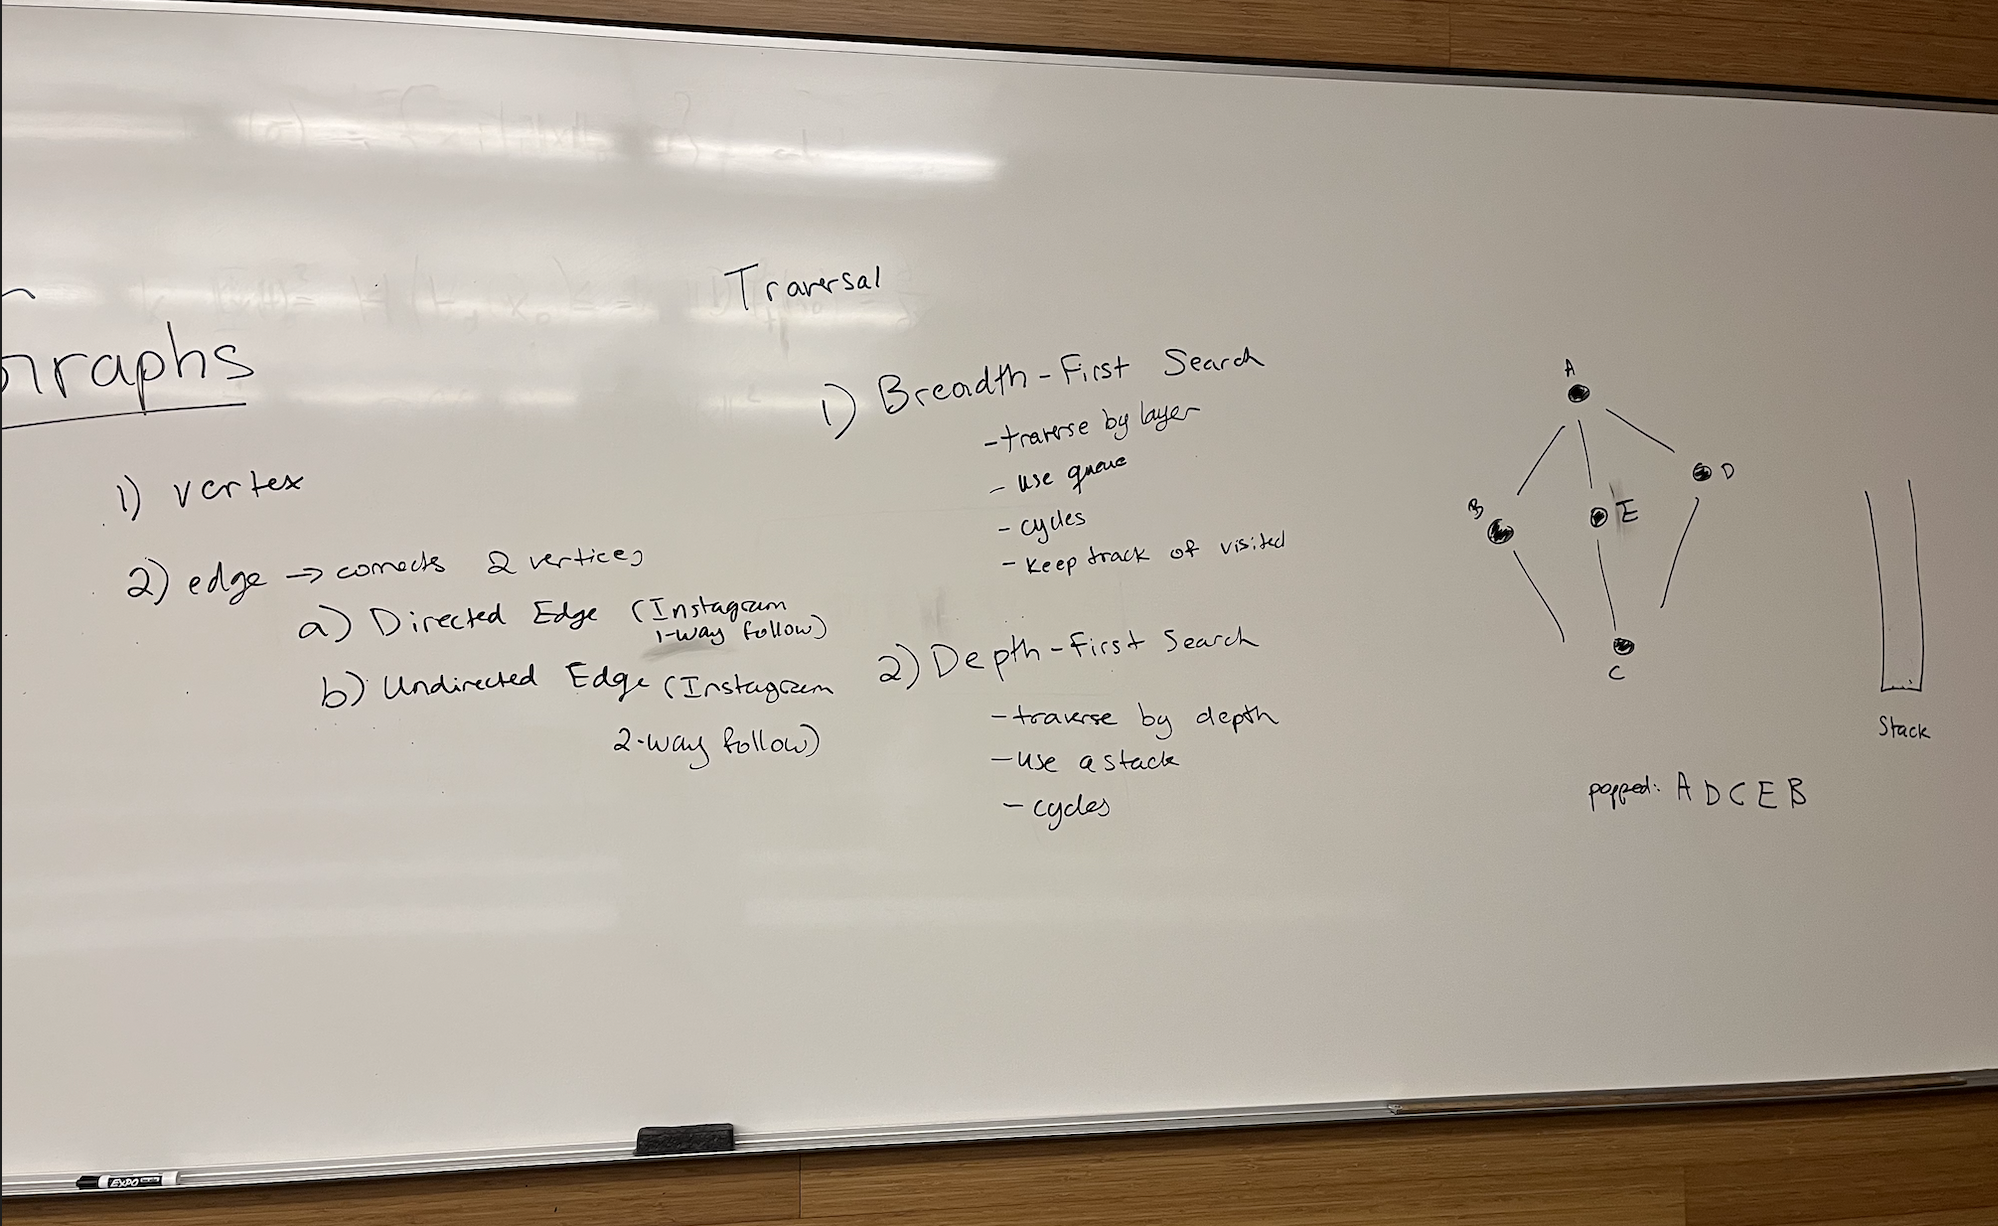 Graphs
1) vertex
2) edge → connects 2 vertices
a) Directed Edge (Instagram
1-way follow)
b) Undirected Edge (Instagram
2-way follow)
Traversal
1) Breadth-First Search
- traverse by layer
- use queue
- cycles
- keep track of visited
2) Depth-First Search
- traverse by depth
- use a stack
- cycles
A
B
E
D
C
Stack
popped: A D C E B
EXPO